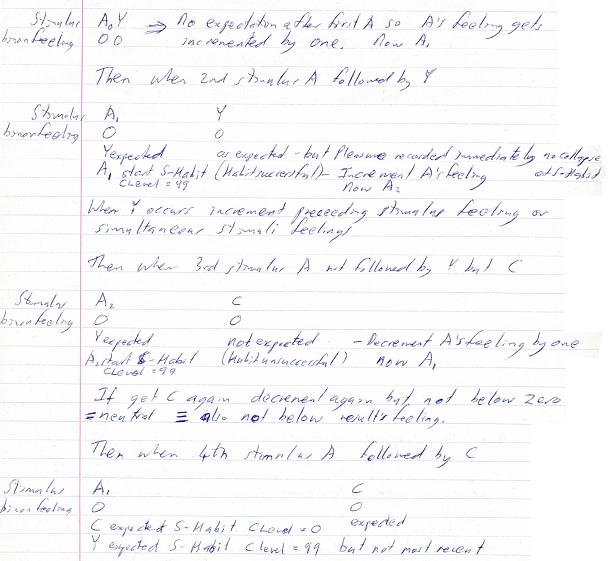 Stimulus A₀ Y ⇒ No expectation after first A so A's feeling gets
binonfeeling 0 0 incremented by one. Now A₁
Then when 2nd stimulus A followed by Y
Stimulus A₁ Y
binonfeeling 0 0
Y expected as expected - but Pleasure recorded immediately by no collapse
A₁ start S-Habit (Habit successful) - Increment A's feeling of S-Habit
CLevel = 99 Now A₂
When Y occurs increment preceeding stimulus feeling or
simultaneous stimuli feelings
Then when 3rd stimulus A not followed by Y but C
Stimulus A₂ C
binonfeeling 0 0
Y expected not expected - Decrement A's feeling by one
A₂ start S-Habit (Habit unsuccessful) now A₁
CLevel = 99
If get C again decrement again but not below zero
= neutral ≡ also not below result's feeling.
Then when 4th stimulus A followed by C
Stimulus A₁ C
binonfeeling 0 0
C expected S-Habit CLevel = 0 expected
Y expected S-Habit Clevel = 99 but not most recent